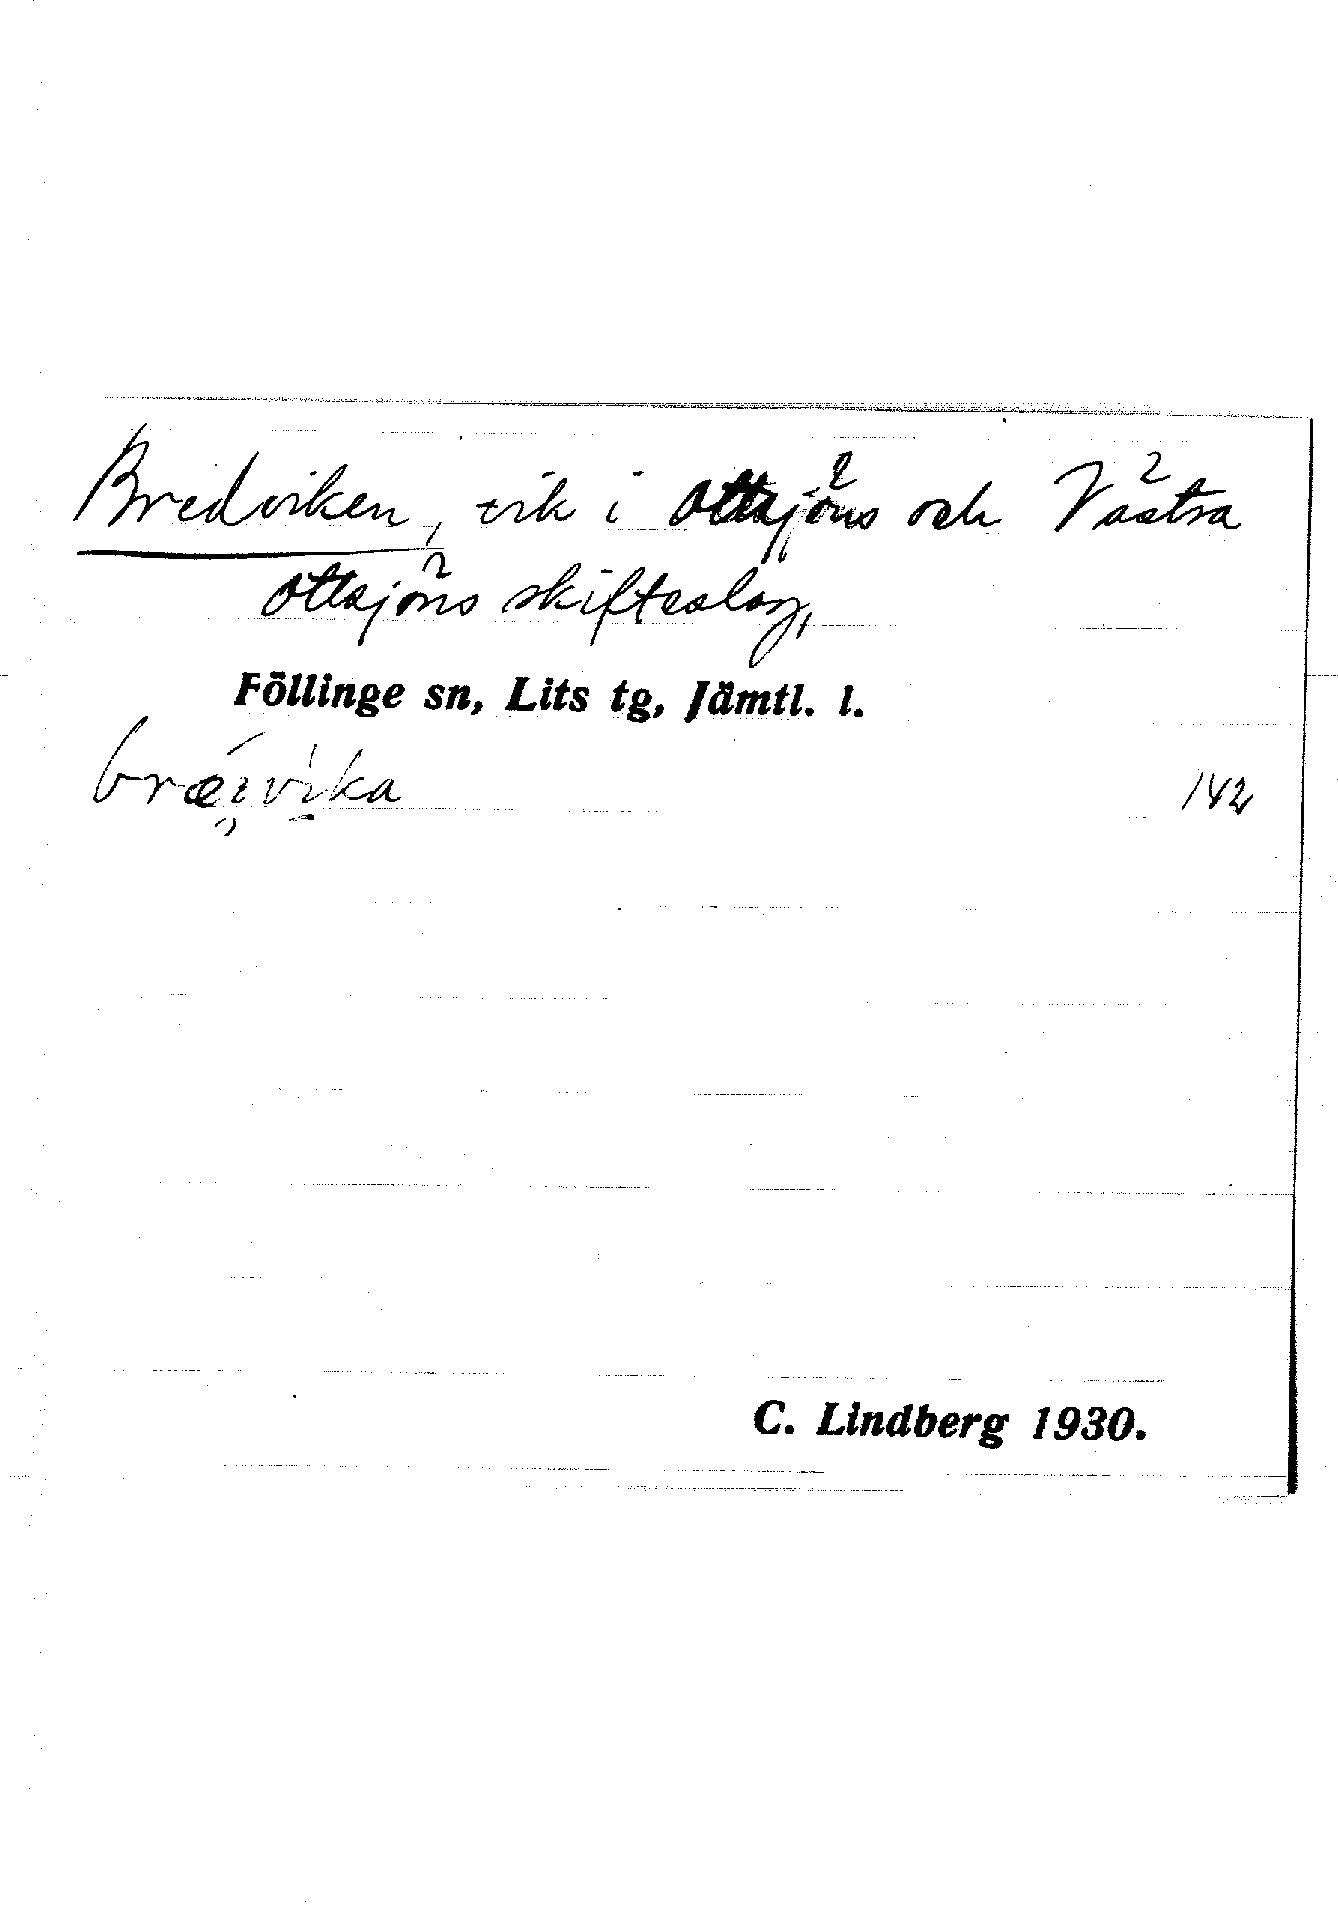 Bredviken, vik i Ottsjöns och Västra
Ottsjöns skifteslag,
Föllinge sn, Lits tg, Jämtl. l.
bræi̯vika
142
C. Lindberg 1930.